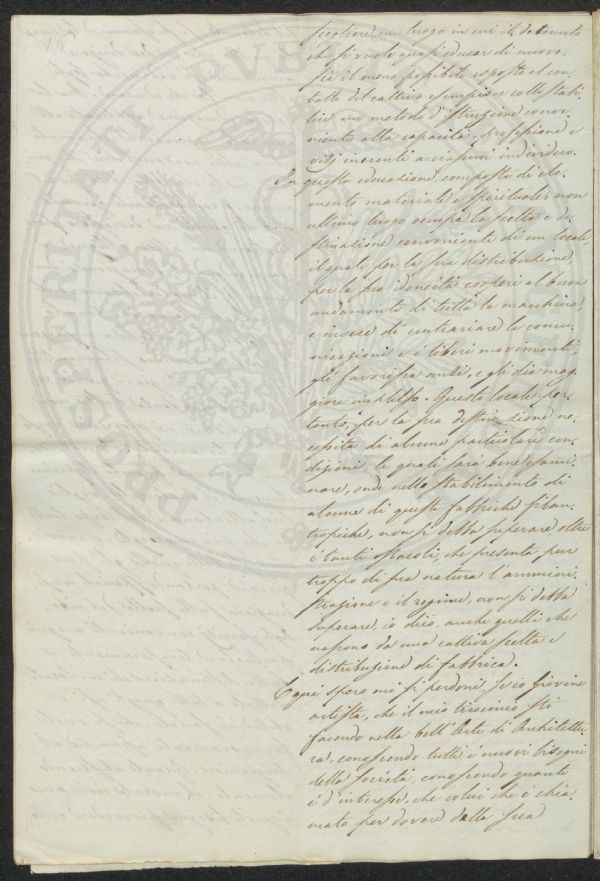 scegliere un luogo in cui il detenuto
che si vuole quasi educar di nuovo
sia il meno possibile esposto al con-
tatto del cattivo esempio e collo stabi-
lire un metodo d'istruzione conve-
niente alla capacità, professione e
vizj inerenti a ciascun individuo.
In questa educazione, composta di ele-
mento materiale e spirituale, non
ultimo luogo occupa la scelta e di-
stribuzione conveniente di un locale,
il quale per la sua distribuzione,
per la sua idoneità cooperi al buon
andamento di tutta la macchina,
e invece di contrariare le comu-
nicazioni e i liberi movimenti,
gli favorisca anzi, e gli dia mag-
giore impulso. Questo locale per-
tanto, per la sua destinazione ne-
cessita di alcune particolari con-
dizioni, le quali sarà bene esami-
nare, onde nello stabilimento di
alcune di queste fabbriche filan-
tropiche, non si debba superare oltre
i tanti ostacoli, che presenta pur
troppo di sua natura l'ammini-
strazione e il regime, non si debba
superare, io dico, anche quelli che
nascono da una cattiva scelta e
distribuzione di fabbrica.
E qui spero mi si perdoni, se io Giovine
artista, che il mio tirocinio stò
facendo nella bell'Arte di Architettu-
ra, conoscendo tutti i nuovi bisogni
della società, conoscendo quanto
è d'interesse, che colui che è chia-
mato per dovere dalla sua
PROSPERITATI PVB